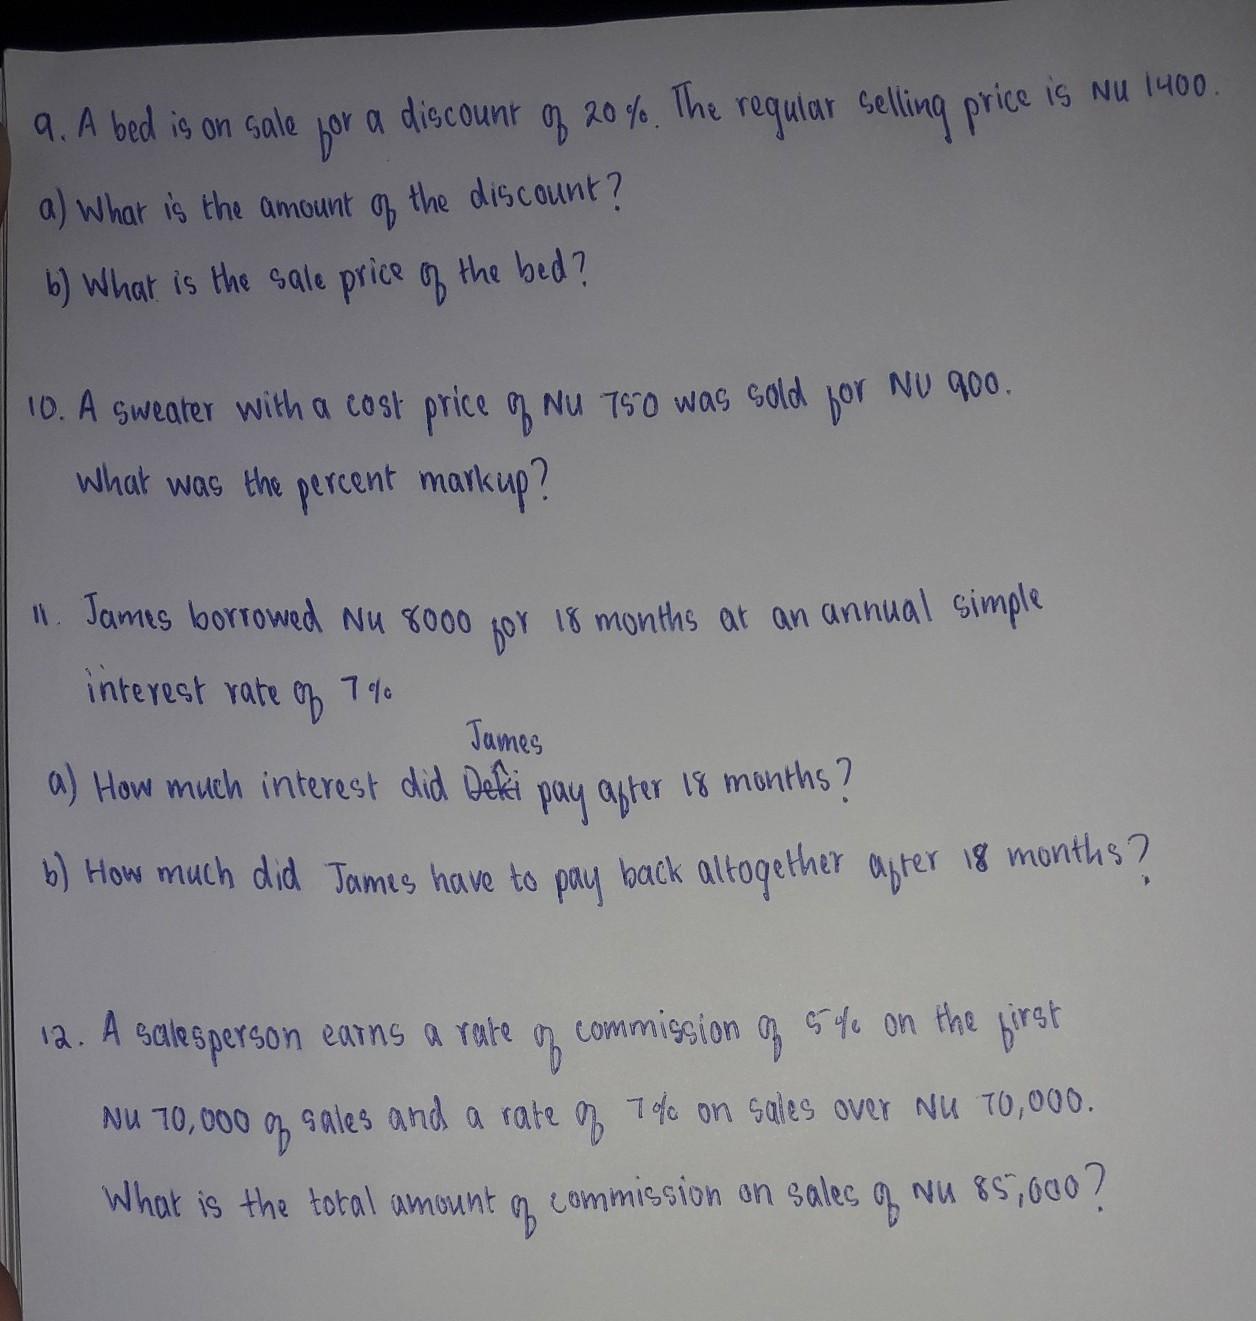 9. A bed is on sale for a discount of 20%. The regular selling price is Nu 1400.
a) What is the amount of the discount?
b) What is the sale price of the bed?
10. A sweater with a cost price of Nu 750 was sold for NU 900.
What was the percent markup?
11. James borrowed Nu 8000 for 18 months at an annual simple
interest rate of 7%
James
a) How much interest did Deki pay after 18 months?
b) How much did James have to pay back altogether after 18 months?
12. A salesperson earns a rate of commission of 5% on the first
Nu 70,000 of sales and a rate of 7% on sales over Nu 70,000.
What is the total amount of commission on sales of Nu 85,000?